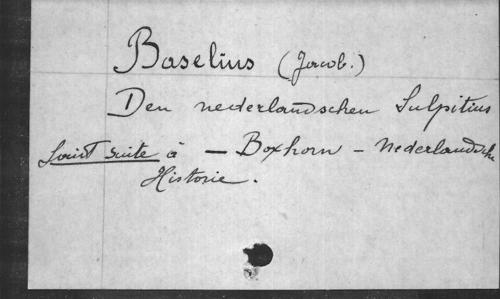 Baselius (Jacob.)
Den nederlandschen Sulpitius
faisT suite à — Boxhorn — Nederlandsche
Historie.